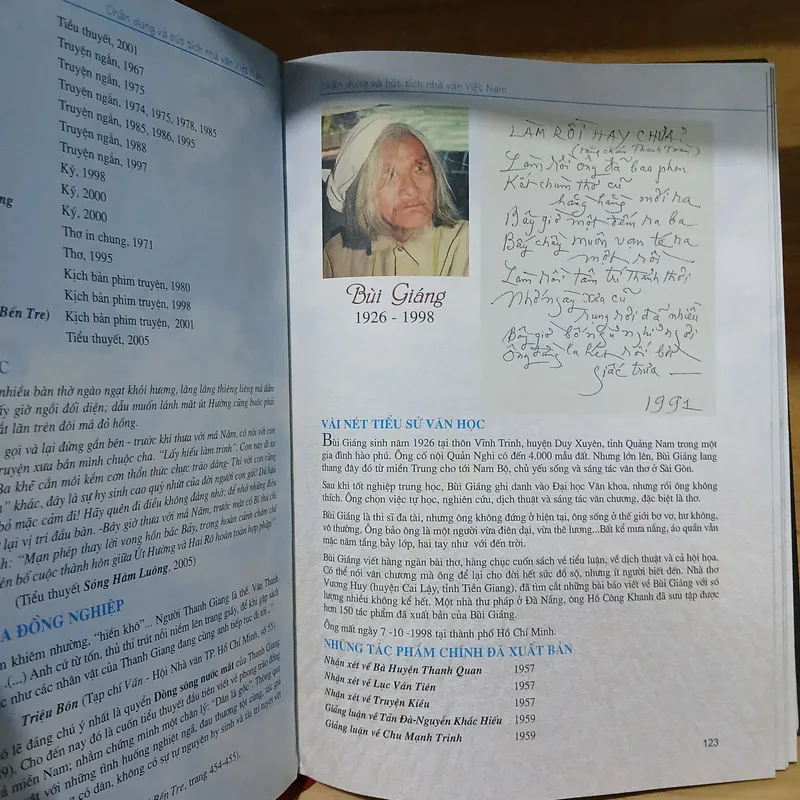 Chân dung và bút tích nhà văn Việt Nam
Tiểu thuyết, 2001
Truyện ngắn, 1967
Truyện ngắn, 1975
Truyện ngắn, 1974, 1975, 1978, 1985
Truyện ngắn, 1985, 1986, 1995
Truyện ngắn, 1988
Truyện ngắn, 1997
Ký, 1998
Ký, 2000
Ký, 2000
Thơ in chung, 1971
Thơ, 1995
Kịch bản phim truyện, 1980
Kịch bản phim truyện, 1998
Bến Tre) Kịch bản phim truyện, 2001
Tiểu thuyết, 2005
C
nhiều bàn thờ ngào ngạt khói hương, lâng lâng thiêng liêng mà dầm
ấy giờ ngồi đối diện; dẫu muốn lánh mặt út Hường cũng buộc phải
ắt lăn trên đôi má đỏ hồng.
gọi và lại đứng gần bên - trước khi thưa với má Năm, có nói với con
ruyện xưa bản mình chuộc cha. “Lấy hiếu làm trinh”. Con nay đi xa
Ba khẽ cắn môi kềm cơn thổn thức chực trào dâng- Thì với con cũng
n” khác, đây là sự hy sinh cao quý nhất của đời người con gái! Đã hậu
bỏ mặc cảm đi! Hãy quên đi điều không đáng nhớ; để nhớ những điều
lại vị trí đầu bàn. -Bây giờ thưa với má Năm, trước mặt có Bí thư chi
h: “Mạn phép thay lời vong hồn bác Bảy, trong hoàn cảnh chấn chế
ên bố cuộc thành hôn giữa Út Hường và Hai Rô hoàn toàn hợp pháp!”
(Tiểu thuyết Sóng Hàm Luông, 2005)
A ĐỒNG NGHIỆP
m khiêm nhường, “hiền khô”... Người Thanh Giang là thế. Văn Thanh
.(...) Anh cứ từ tốn, thủ thỉ trút nỗi niềm lên trang giấy, để khi gấp sách
c như các nhân vật của Thanh Giang đang cùng anh tiếp tục đi tới...”
Triệu Bôn (Tạp chí Văn - Hội Nhà văn TP. Hồ Chí Minh, số 55)
ó lẽ đáng chú ý nhất là quyển Dòng sông nước mắt của Thanh Giang
9). Cho đến nay đó là cuốn tiểu thuyết đầu tiên viết về phong trào đồng
à miền Nam; nhằm chứng minh một chân lý: “Dân là gốc”. Thông qua
ật với những tình huống nghiệt ngã, đau thương tột cùng, tác giả
ó dân, không có sự tự nguyện hy sinh và tài trí tuyệt vời
Bến Tre, trang 454-455).
Chân dung và bút tích nhà văn Việt Nam
LÀM RỒI HAY CHƯA?
(tặng chấn Thanh Toàn)
Làm rồi ông đã bao phen
Kết chùm thơ cũ
hàng hàng mới ra
Bây giờ một đếm ra ba
Bấy chầy muôn vạn té ra
một rồi
Làm rồi tâm trí thảnh thơi
Những ngày xưa cũ
rụng rời đã nhiều
Bây giờ bố ngủ nghỉ
Ông
giấc trưa —
1991
Bùi Giáng
1926 - 1998
VÀI NÉT TIỂU SỬ VĂN HỌC
Bùi Giáng sinh năm 1926 tại thôn Vĩnh Trinh, huyện Duy Xuyên, tỉnh Quảng Nam trong một
gia đình hào phú. Ông cố nội Quản Nghi có đến 4.000 mẫu đất. Nhưng lớn lên, Bùi Giáng lang
thang đây đó từ miền Trung cho tới Nam Bộ, chủ yếu sống và sáng tác văn thơ ở Sài Gòn.
Sau khi tốt nghiệp trung học, Bùi Giáng ghi danh vào Đại học Văn khoa, nhưng rồi ông không
thích. Ông chọn việc tự học, nghiên cứu, dịch thuật và sáng tác văn chương, đặc biệt là thơ.
Bùi Giáng là thi sĩ đa tài, nhưng ông không đứng ở hiện tại, ông sống ở thế giới bơ vơ, hư không,
vô thường. Ông bảo ông là một người vừa điên dại, vừa thê lương...Bất kể mưa nắng, áo quần vẫn
mặc năm tầng bảy lớp, hai tay như với đến trời.
Bùi Giáng viết hàng ngàn bài thơ, hàng chục cuốn sách về tiểu luận, về dịch thuật và cả hội họa.
Có thể nói văn chương mà ông để lại cho đời hết sức đồ sộ, nhưng ít người biết đến. Nhà thơ
Vương Huy (huyện Cai Lậy, tỉnh Tiền Giang), đã tìm cất những bài báo viết về Bùi Giáng với số
lượng nhiều không kể hết. Một nhà thư pháp ở Đà Nẵng, ông Hồ Công Khanh đã sưu tập được
hơn 150 tác phẩm đã xuất bản của Bùi Giáng.
Ông mất ngày 7 -10 -1998 tại thành phố Hồ Chí Minh.
NHỮNG TÁC PHẨM CHÍNH ĐÃ XUẤT BẢN
Nhận xét về Bà Huyện Thanh Quan 1957
Nhận xét về Lục Vân Tiên 1957
Nhận xét về Truyện Kiều 1957
Giảng luận về Tản Đà-Nguyễn Khắc Hiếu 1959
Giảng luận về Chu Mạnh Trinh 1959
123